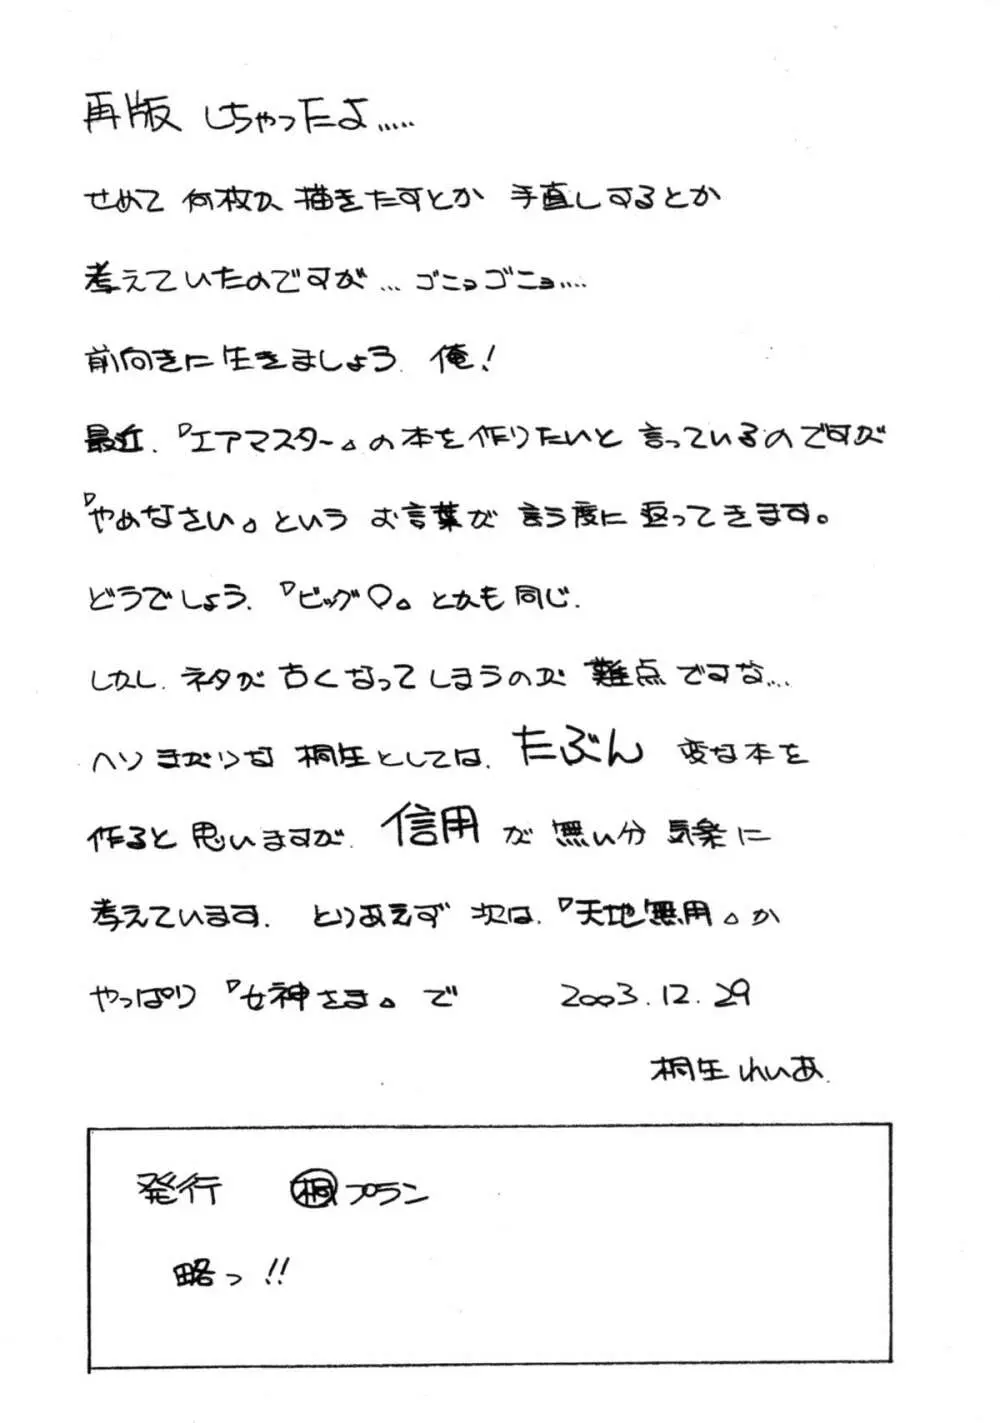 再版 しちゃったよ.....
せめて 何枚か 描きたすとか 手直しするとか
考えていたのですが... ゴニョゴニョ....
前向きに 生きましょう. 俺!
最近.『エアマスター』の本を 作りたいと 言っているのですが
『やめなさい』という お言葉が 言う度に 返ってきます。
どうでしょう.『ビッグO』とかも同じ.
しかし. ネタが 古くなってしまうのが 難点ですな...
ヘソまがりな 桐生としては. たぶん 変な本を
作ると 思いますが. 信用が 無い分 気楽に
考えています. とりあえず 次は.『天地無用』か
やっぱり『女神さま』で 2003.12.29
桐生れいあ.
発行 桐プラン
略っ!!